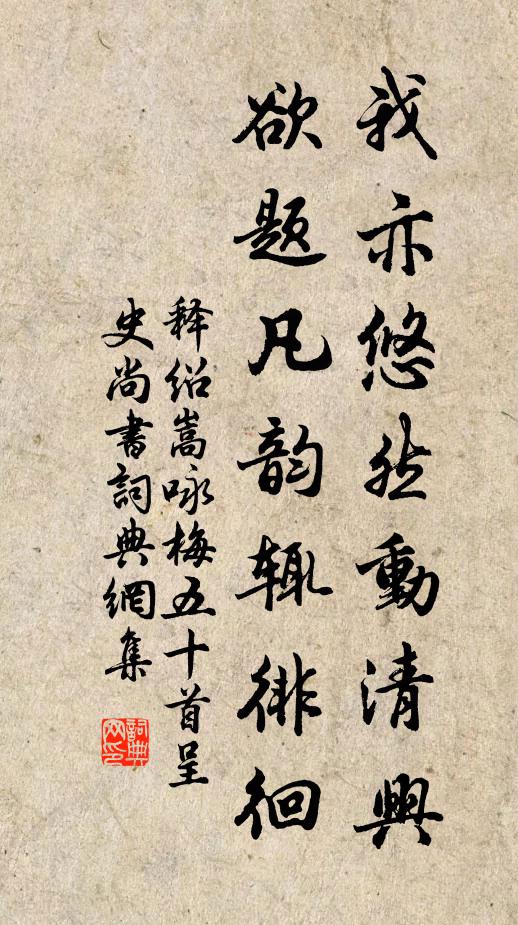 我亦悠然動清興
欲题凡韵辄徘徊
释绍嵩咏梅五十首呈
史尚書詞典網集
詞典网印